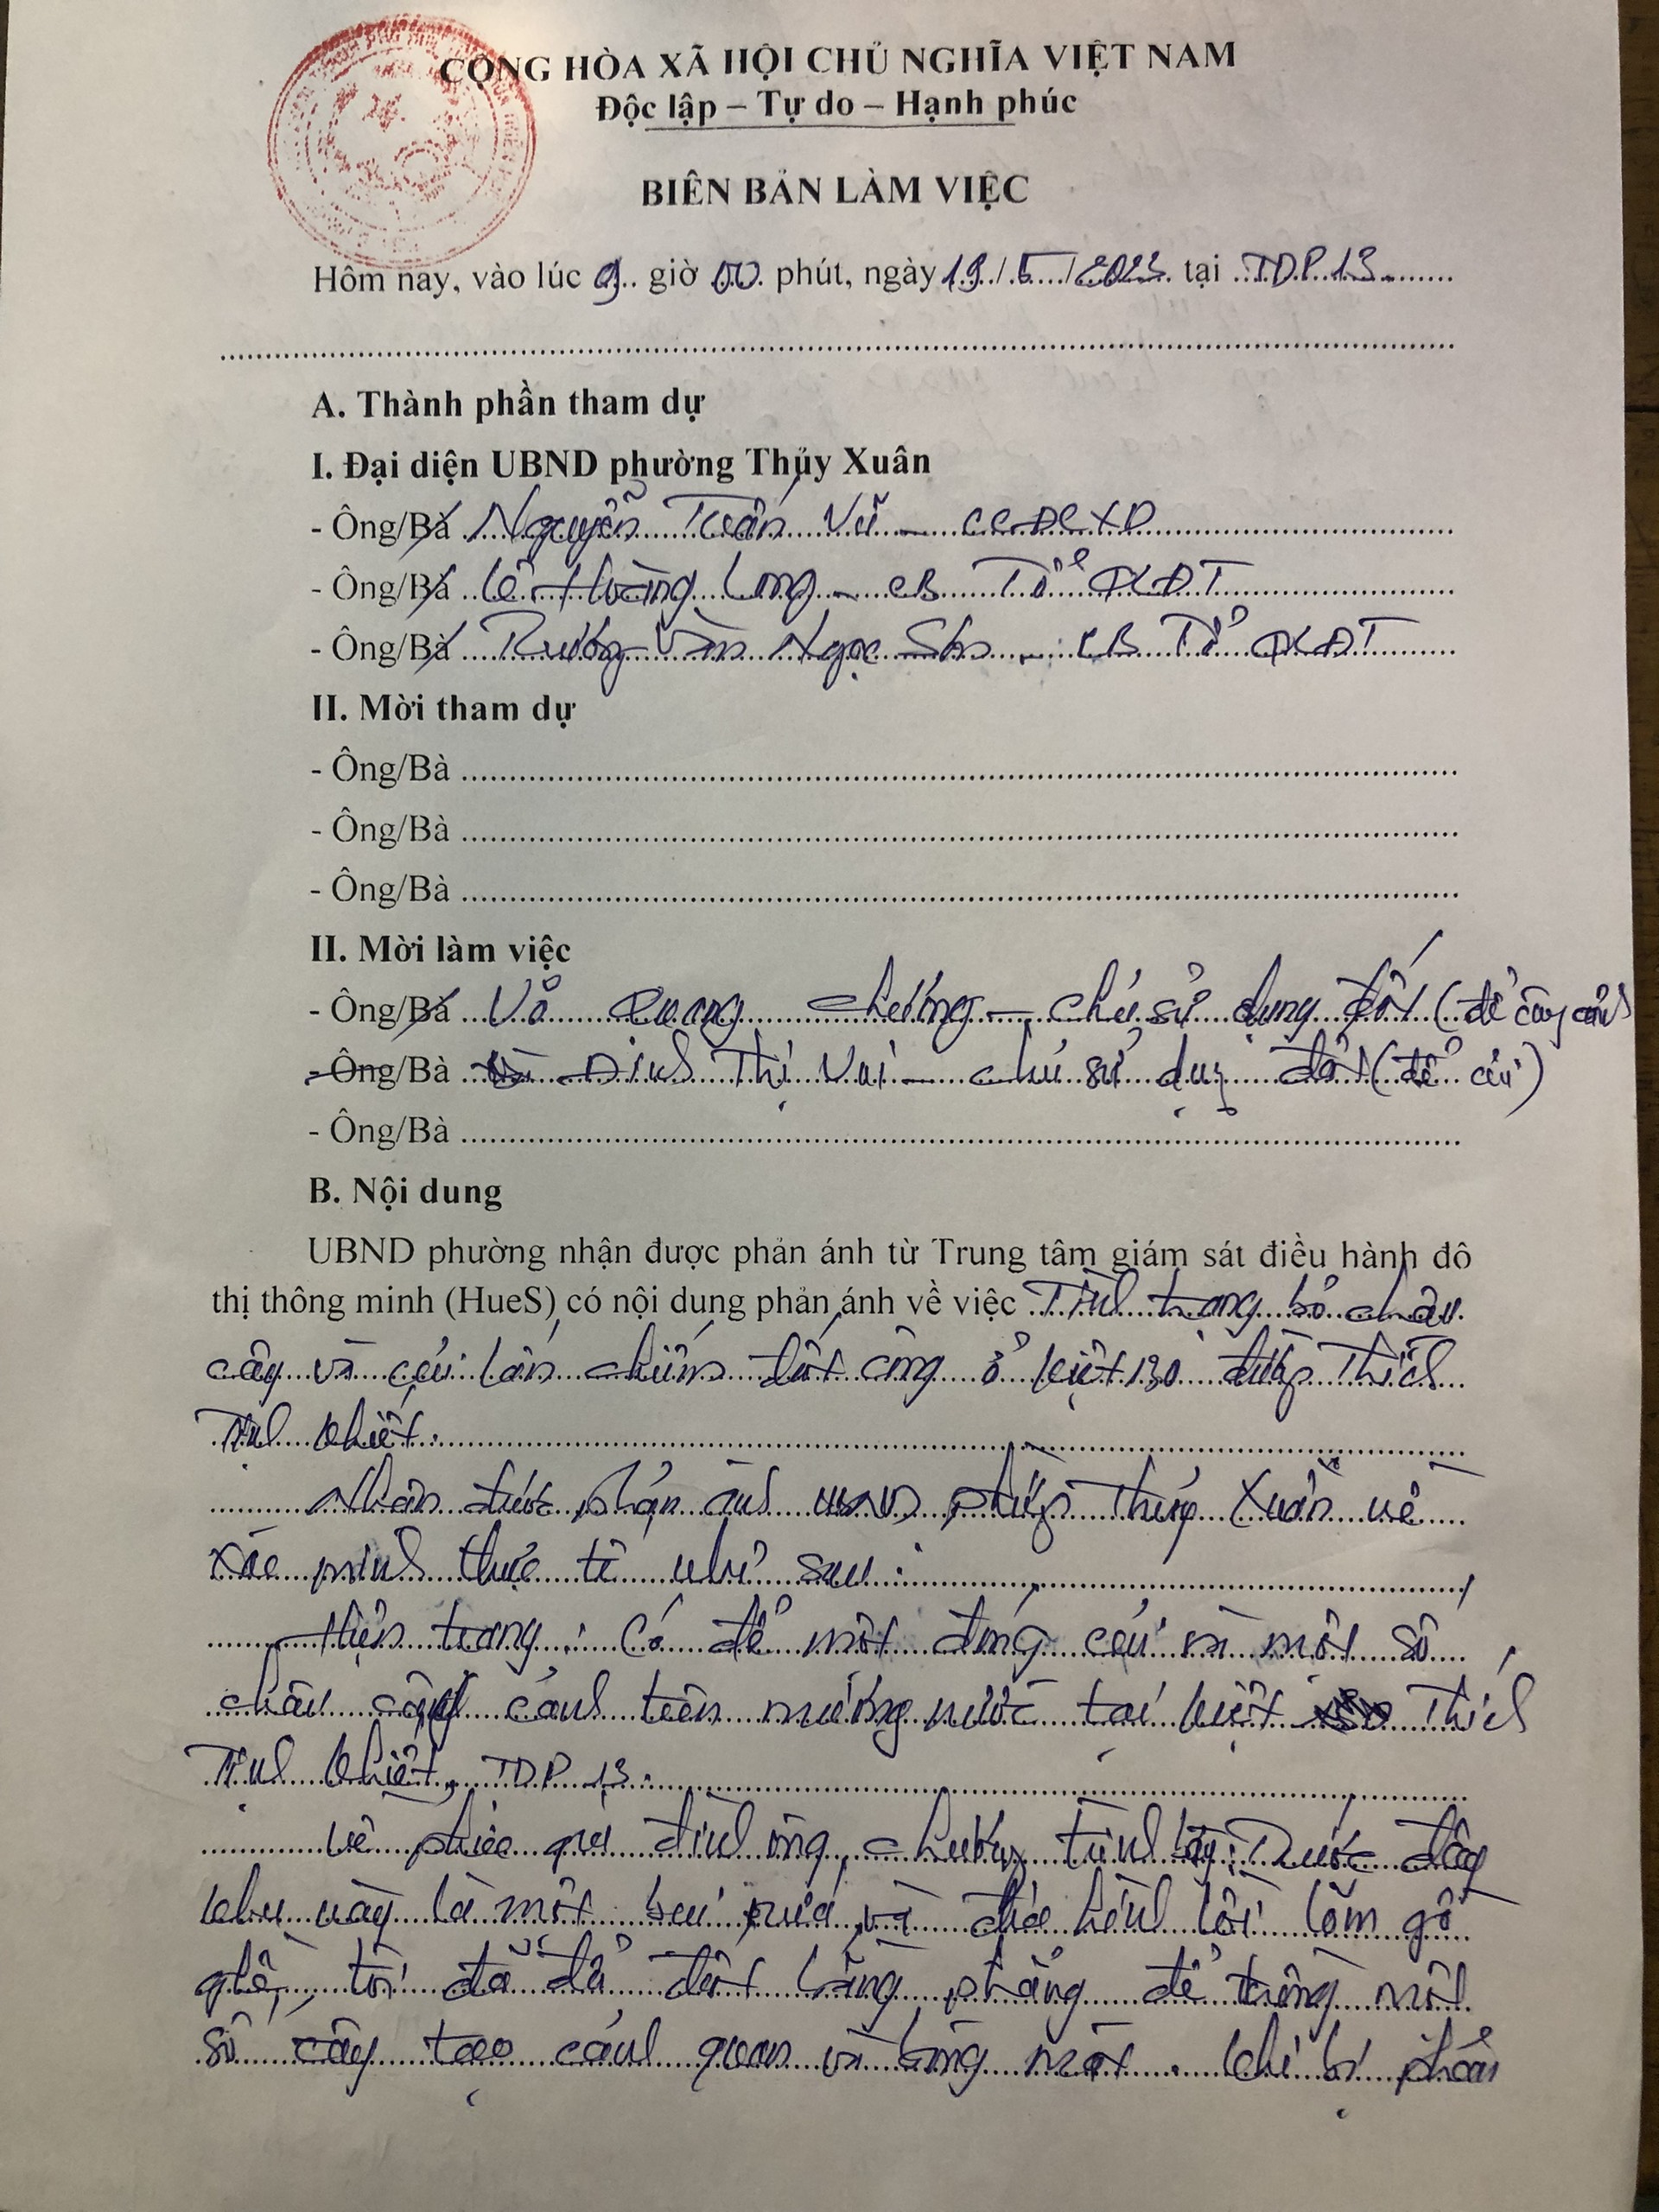 CỘNG HÒA XÃ HỘI CHỦ NGHĨA VIỆT NAM
Độc lập – Tự do – Hạnh phúc
BIÊN BẢN LÀM VIỆC
Hôm nay, vào lúc 9 giờ 00 phút, ngày 19/5/2023 tại TDP 13
A. Thành phần tham dự
I. Đại diện UBND phường Thủy Xuân
- Ông/Bà Nguyễn Tuấn Vũ – CCĐCXD
- Ông/Bà Lê Hoàng Long – CB Tổ QLĐT
- Ông/Bà Trương Văn Ngọc Sơn – CB Tổ QLĐT
II. Mời tham dự
- Ông/Bà
- Ông/Bà
- Ông/Bà
II. Mời làm việc
- Ông/Bà Võ Quang Chương – chủ sử dụng đất (để cây cảnh)
- Ông/Bà Đinh Thị Vui – chủ sử dụng đất (để củi)
- Ông/Bà
B. Nội dung
UBND phường nhận được phản ánh từ Trung tâm giám sát điều hành đô
thị thông minh (HueS) có nội dung phản ánh về việc Tình trạng bỏ chậu
cây và củi lấn chiếm đất công ở kiệt 130 đường Thích
Tịnh Khiết.
Nhận được phản ánh UBND phường Thủy Xuân về
xác minh thực tế như sau:
Hiện trạng: Có để một đống củi và một số
chậu cây cảnh trên mương nước tại kiệt Thích
Tịnh Khiết, TDP 13.
Về phía gia đình ông Chương trình bày: Trước đây
khu này là một bụi và địa hình lồi lõm gồ
ghề, tôi đã đổ đất bằng phẳng để trồng một
số cây tạo cảnh quan và bóng mát. Khi bị phản